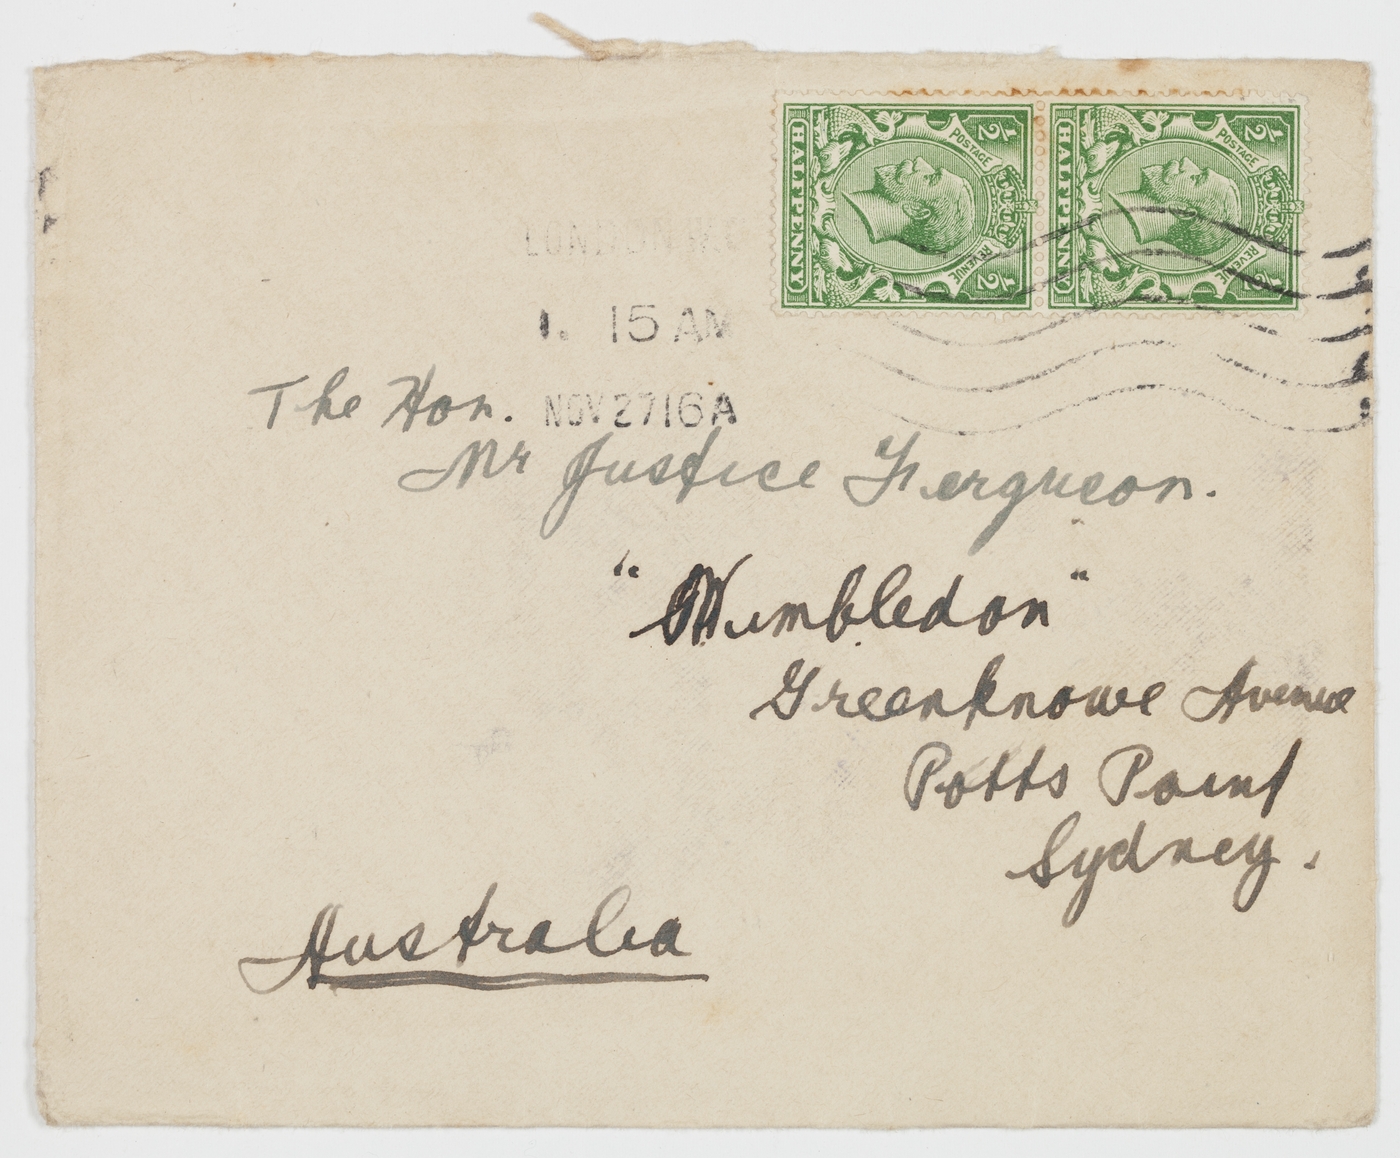 ½ ½
POSTAGE POSTAGE
REVENUE REVENUE
½ ½
HALFPENNY HALFPENNY
LONDON W.C
1. 15 AM
NOV 27 16 A
The Hon.
Mr Justice Ferguson.
"Wimbledon"
Greenknowe Avenue
Potts Point
Sydney.
Australia